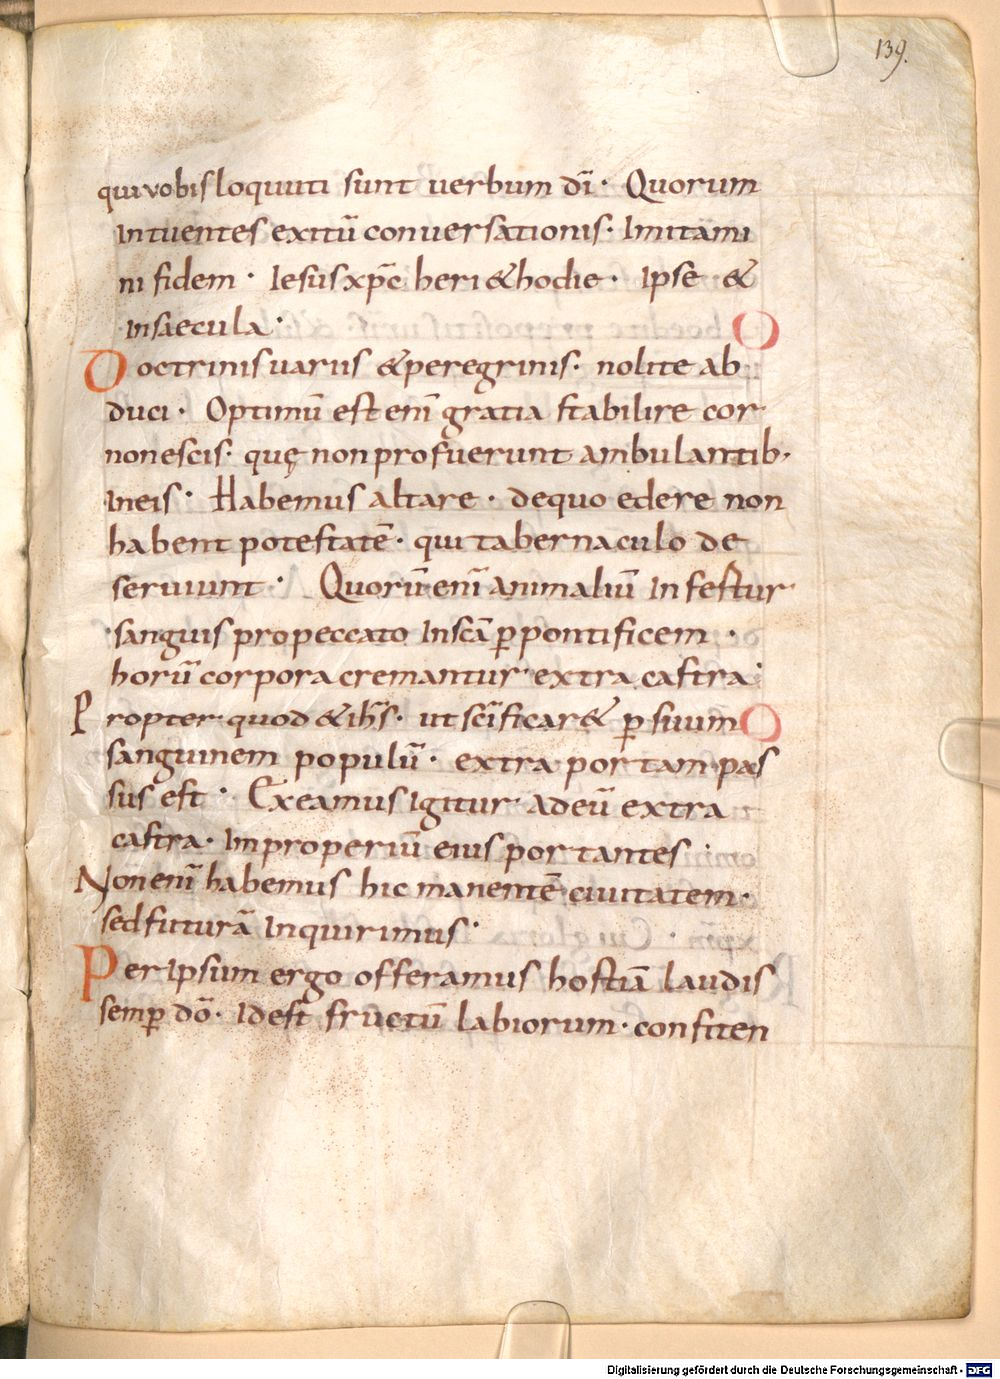 139.
qui vobis loquuti sunt uerbum dī· Quorum
Intuentes exitū conuersationis· Imitami
ni fidem· Iesus xp̄c heri & hodie· Ipse &
In saecula·
Doctrinis uariis & peregrinis· nolite ab
duci· Optimū est enī gratia stabilire cor·
non escis· quę non profuerunt ambulantib·
In eis· Habemus altare· de quo edere non
habent potestatē· qui tabernaculo de
seruiunt· Quorū enī animaliū Infertur·
sanguis pro peccato In scā ꝑ pontificem·
horū corpora cremantur· extra castra·
Propter quod & ih̄s· ut scīficar& ꝑ suum
sanguinem populū· extra portam pas
sus est· Exeamus Igitur· ad eū extra
castra· Improperiū eius portantes·
Non enī habemus hic manentē ciuitatem·
sed futurā Inquirimus·
Per Ipsum ergo offeramus hostiā laudis
semꝑ dō· Id est fructū labiorum· confiten
Digitalisierung gefördert durch die Deutsche Forschungsgemeinschaft - DFG